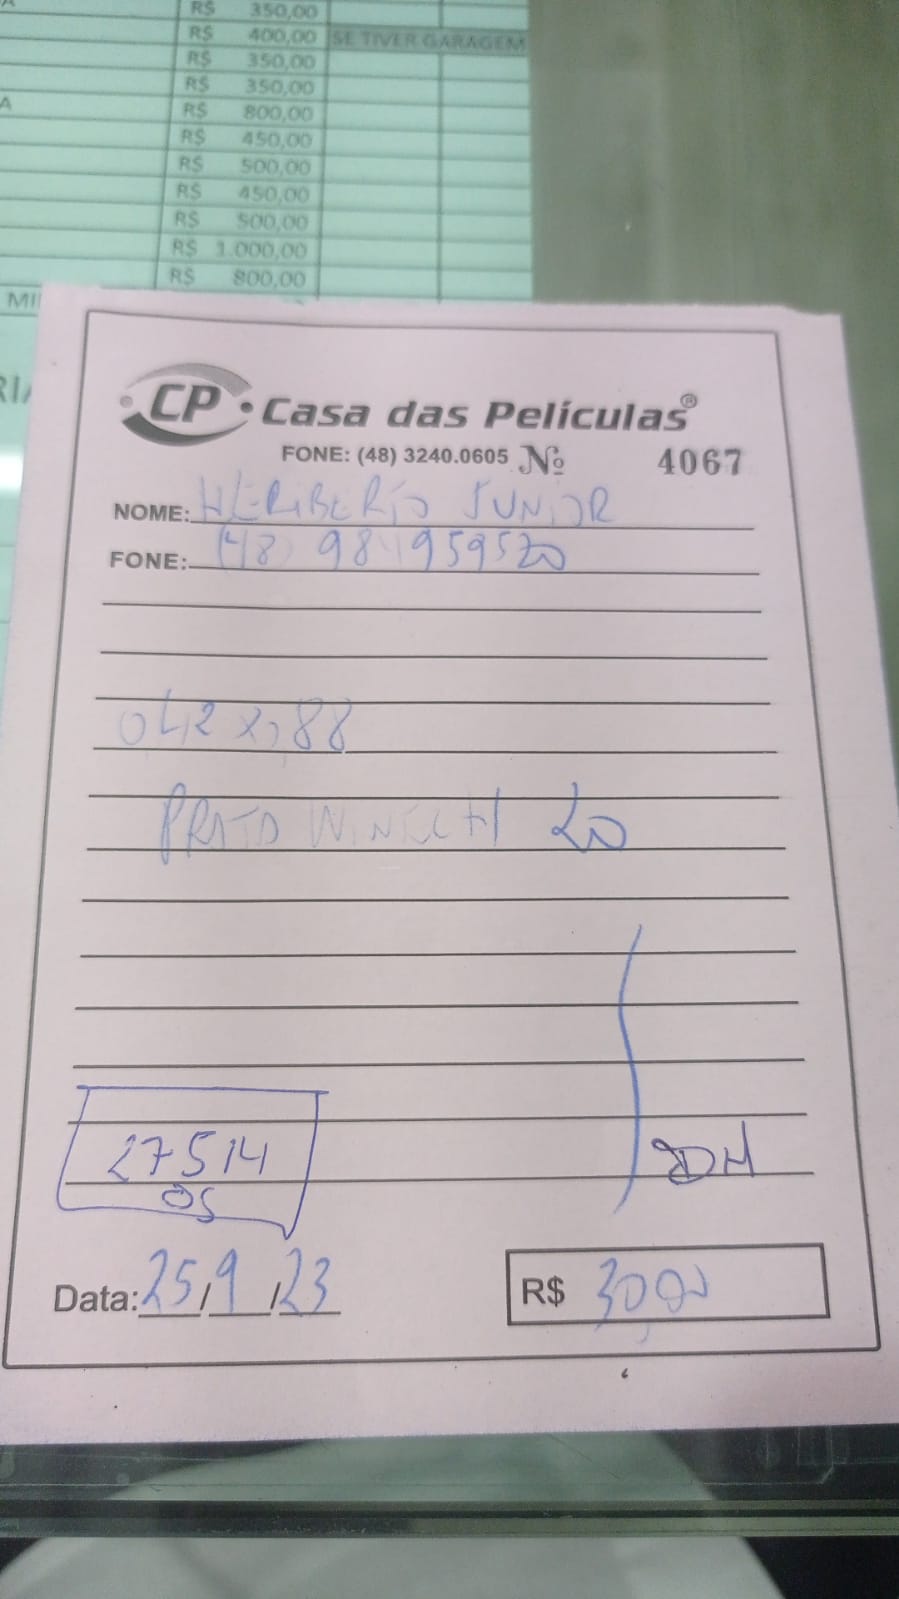 R$ 350,00
R$ 400,00 SE TIVER GARAGEM
R$ 350,00
R$ 350,00
A R$ 800,00
R$ 450,00
R$ 500,00
R$ 450,00
R$ 500,00
R$ 1.000,00
R$ 800,00
CP Casa das Películas®
FONE: (48) 3240.0605 Nº 4067
NOME: HERIBERTO JUNIOR
FONE: (48) 984959520
88
PRATA 20
27514
OS
DH
Data: 25/9/23
R$ 30,00